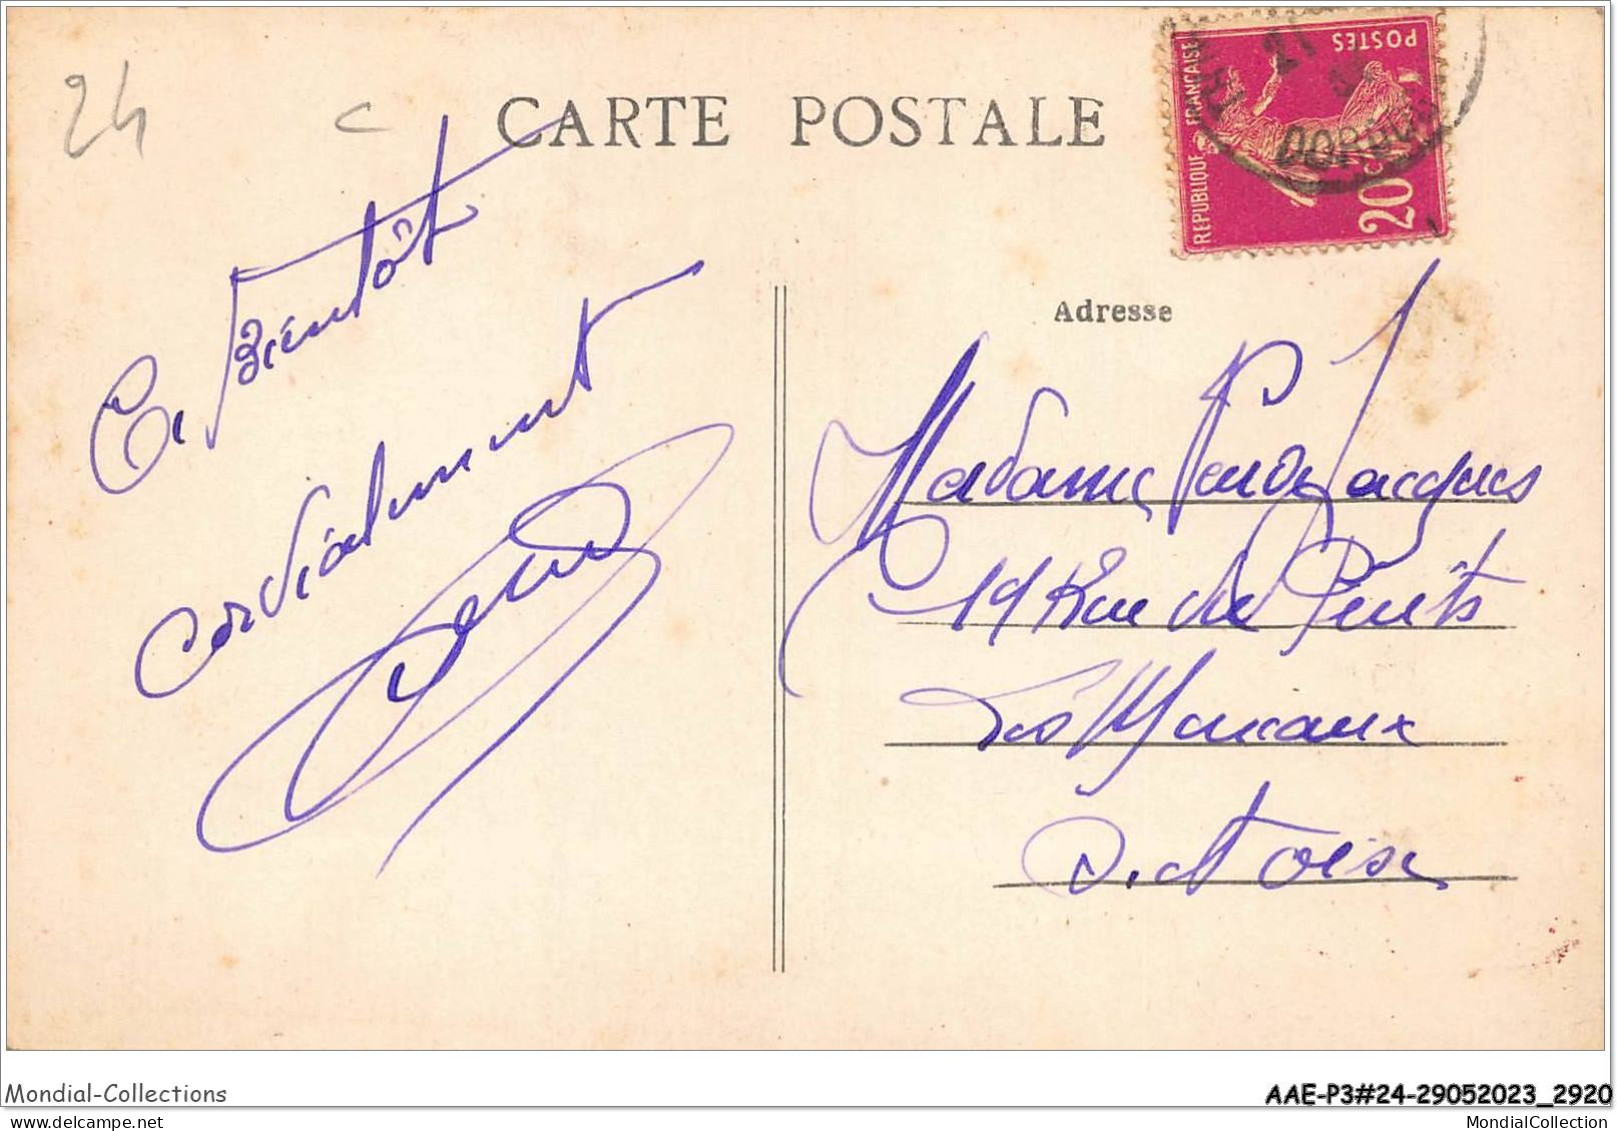 24
CARTE POSTALE
REPUBLIQUE FRANÇAISE
POSTES
20c
21
DORDOGNE
A Bientôt
cordialement
Adresse
Madame Jacques
19 Rue du Puits
Les Mureaux
S. et Oise
Mondial-Collections
AAE-P3#24-29052023_2920
delcampe.net
MondialCollection